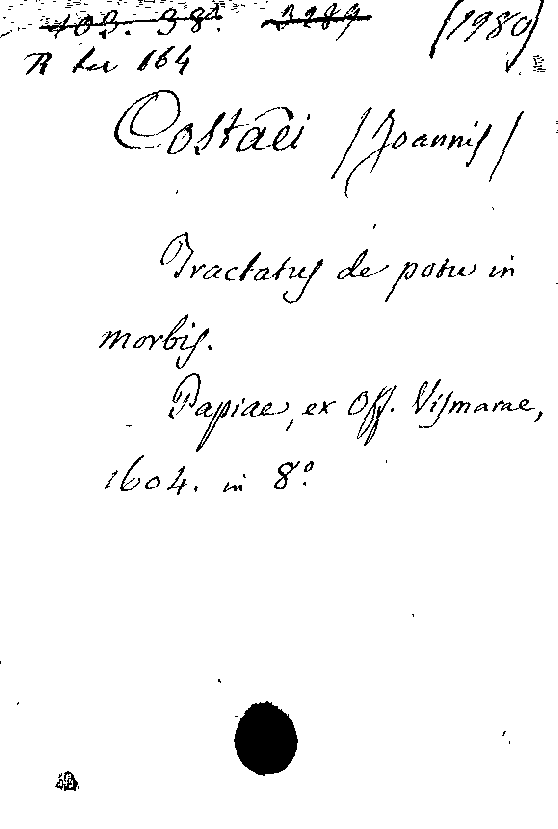 103. 38a. 3289 (1980)
R 164
Costaei (Joannis)
Tractatus de potu in
morbis.
Papiae, ex Off. Vismarae,
1604. in 8.°